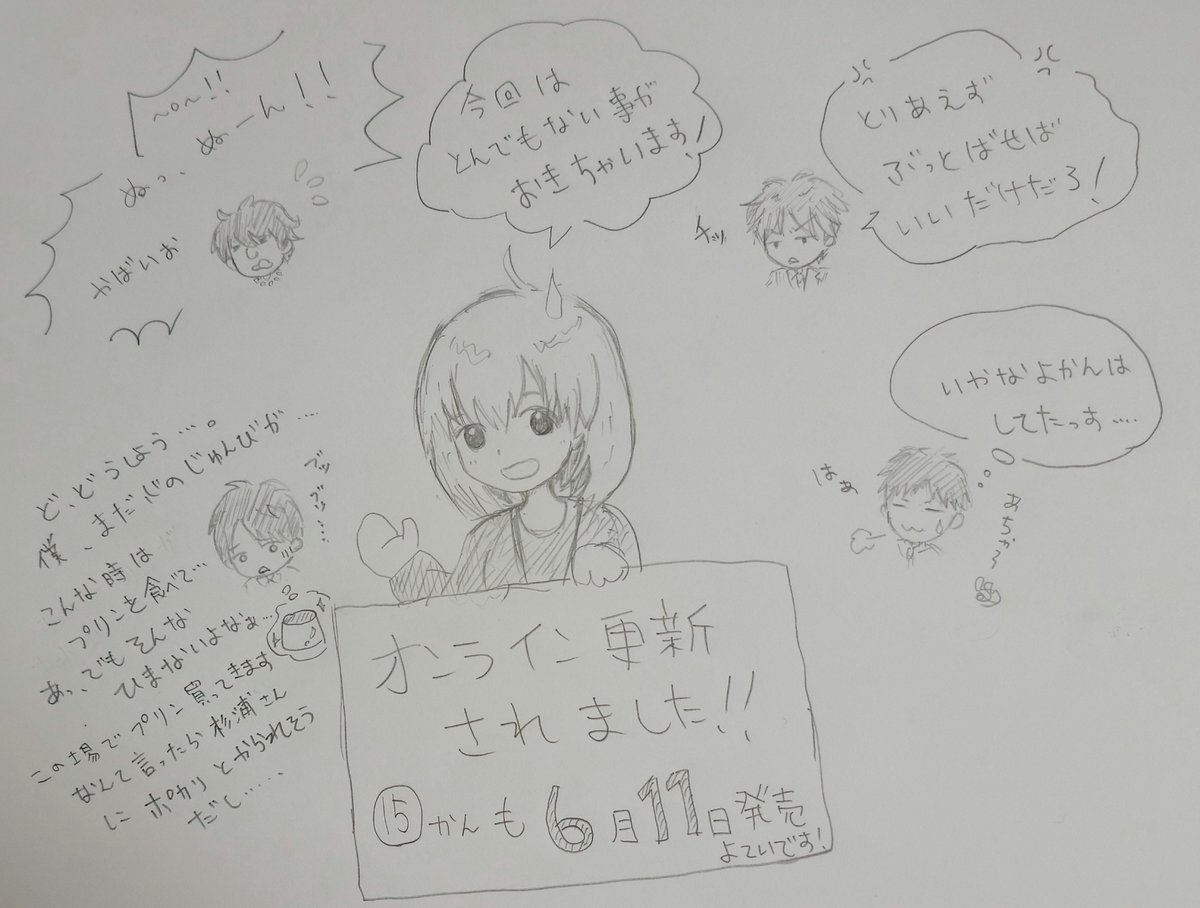 〜o〜!!
ぬっ、ぬーん!!
かばいお
今回は
とんでもない事が
おきちゃいます!
とりあえず
ぶっとばせば
いいだけだろ!
チッ
いやなよかんは
してたっす….
はぁ
あちゃ〜
ど、どうしよう…。
僕、まだ心のじゅんびが….
ブツ
ブツ…
こんな時は
プリンを食べて…
あっ、でもそんな
ひまないよなぁ…
この場でプリン買ってきます
なんて言ったら杉浦さん
にポカリとかられそう
だし……
オンライン更新
されました!!
⑮かんも6月11日発売
よていです!